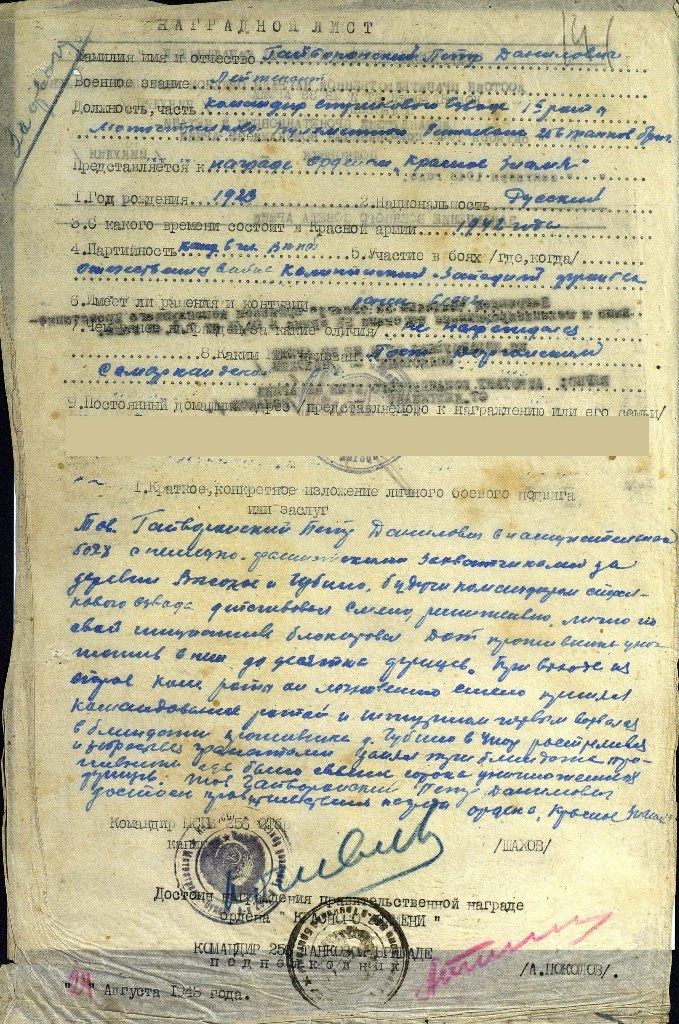 НАГРАДНОЙ ЛИСТ
Фамилия имя и отчество Гайворонский Петр Данилович
Военное звание Лейтенант
Должность, часть командир стрелкового взвода 1й роты
Мотострелково Пулеметного Батальона 256 танков. бриг.
Представляется к награде орденом „Красное Знамя"
1. Год рождения 1923 2. Национальность Русский
3. С какого времени состоит в Красной армии 1942 года
4. Партийность канд. в чл. вкпб 5. Участие в боях /где, когда/
отечественная Калининский Западный
6. Имеет ли ранения и контузии
7. Чем ранее награжден/за какие отличия/ не награждался
8. Каким
Самаркандской
9. Постоянный домашний адрес /представляемого к награждению или его семьи/
1. Краткое, конкретное изложение личного боевого подвига
или заслуг
Тов. Гайворонский Петр Данилович в наступательных
боях с немецко-фашистскими захватчиками за
деревни Высокое и Чубино, будучи командиром стрел-
кового взвода действовал смело, решительно, лично по
свой инициативе блокировал Дот противника уни-
чтожив в нем до десятка фрицев. При выходе из
строя ком. роты он мгновенно смело принял
командование ротой и штурмом первым ворвался
в блиндажи противника д. Чубино в упор расстреливая
и забрасывая гранатами занял три блиндажа про-
тивника где было свыше сорока уничтоженных
фрицев. Тов. Гайворонский Петр Данилович
достоин правительственной награды ордена „Красное Знамя"
Командир МСПБ 256 ОТБр
капитан /ШАХОВ/
Достоин награждения правительственной награде
ордена " КРАСНОГО ЗНАМЕНИ "
КОМАНДИР 256 ТАНКОВОЙ БРИГАДЕ
ПОДПОЛКОВНИК /А. ПОКОЛОВ/.
"24" Августа 1943 года.